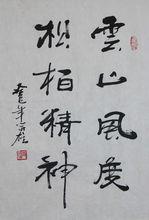 雲山風度
松柏精神